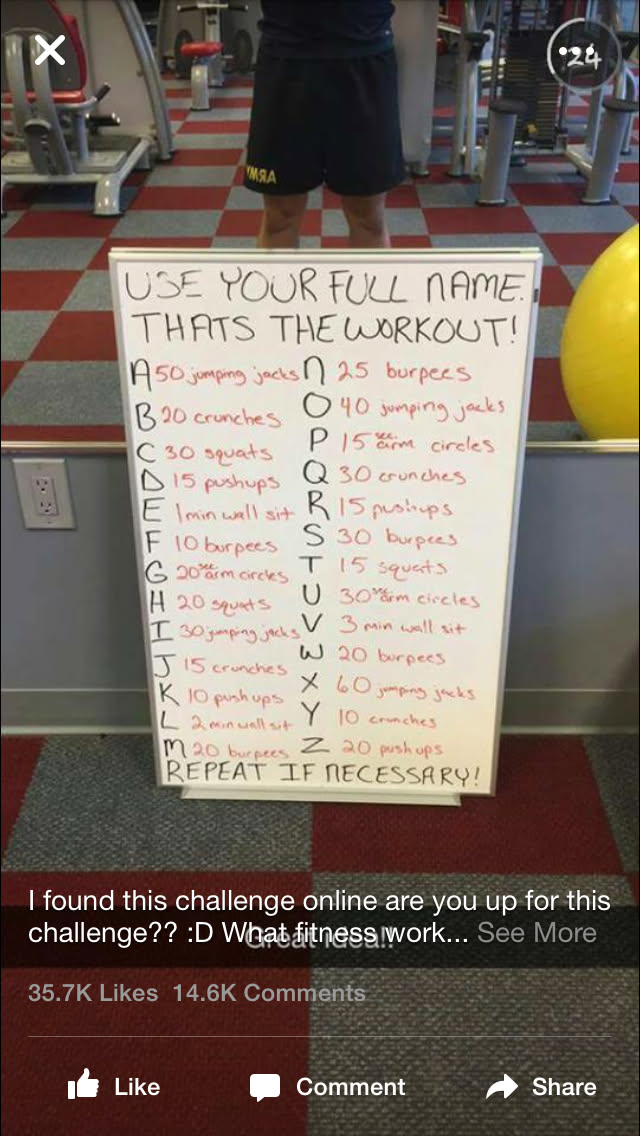 24
ARMY
USE YOUR FULL NAME.
THATS THE WORKOUT!
A 50 jumping jacks
B 20 crunches
C 30 squats
D 15 pushups
E 1 min wall sit
F 10 burpees
G 20 sec arm circles
H 20 squats
I 30 jumping jacks
J 15 crunches
K 10 push ups
L 2 min wall sit
M 20 burpees
N 25 burpees
O 40 jumping jacks
P 15 sec arm circles
Q 30 crunches
R 15 pushups
S 30 burpees
T 15 squats
U 30 sec arm circles
V 3 min wall sit
W 20 burpees
X 60 jumping jacks
Y 10 crunches
Z 20 pushups
REPEAT IF NECESSARY!
I found this challenge online are you up for this
challenge?? :D What fitness work... See More
Great idea!!
35.7K Likes 14.6K Comments
Like Comment Share